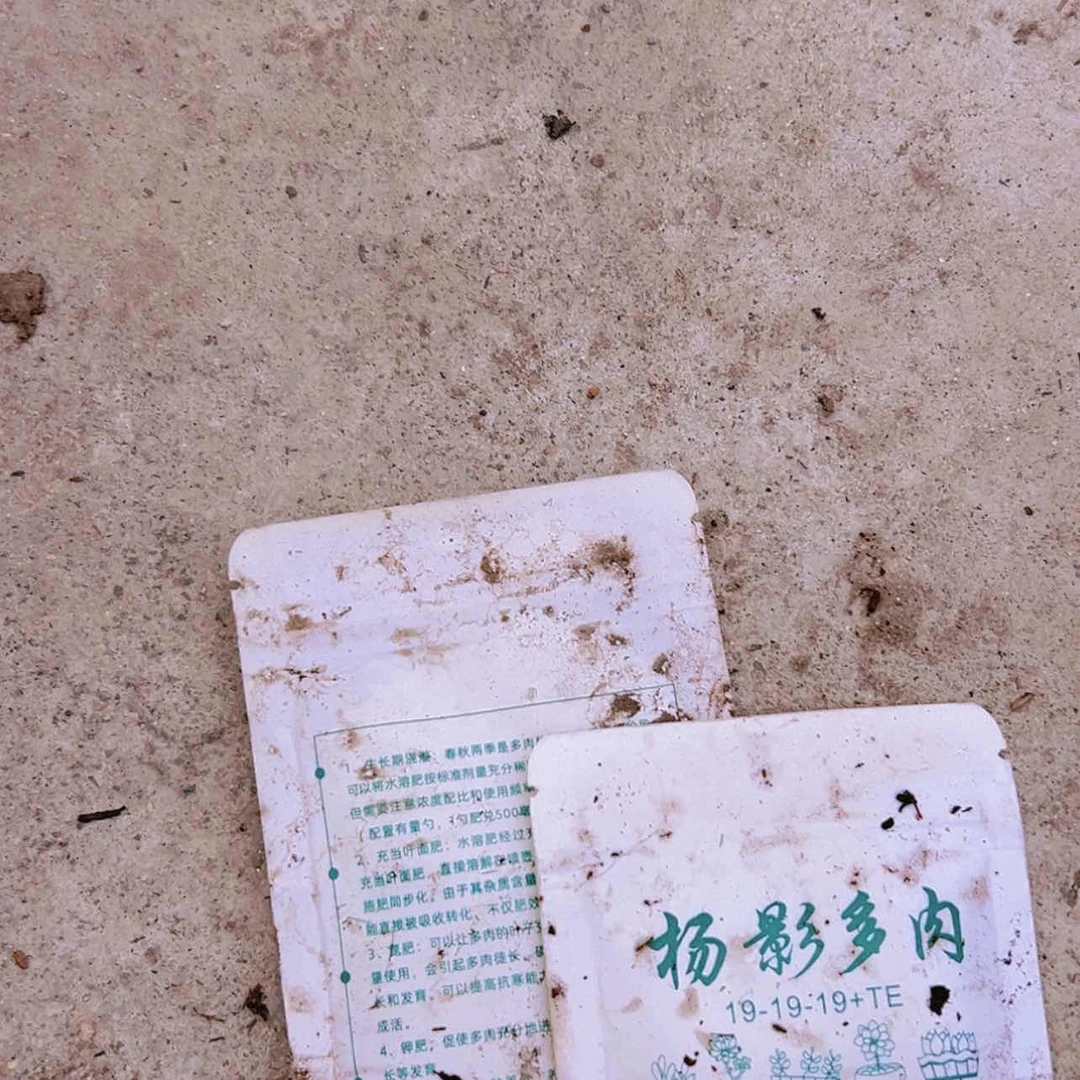 1、生长期浇灌：春秋两季是多肉
可以将水溶肥按标准剂量充分稀
但需要注意浓度配比和使用频
（配置有量勺，1勺肥兑500毫
2、充当叶面肥：水溶肥经过
充当叶面肥，直接溶解在喷
施肥同步化。由于其杂质含量
能直接被吸收转化，不仅肥效
3、氮肥：可以让多肉的叶子
量使用，会引起多肉徒长。
长和发育。可以提高抗寒能
成活。
4、钾肥：促使多肉充分地进
长等发育
杨影多肉
19-19-19+TE